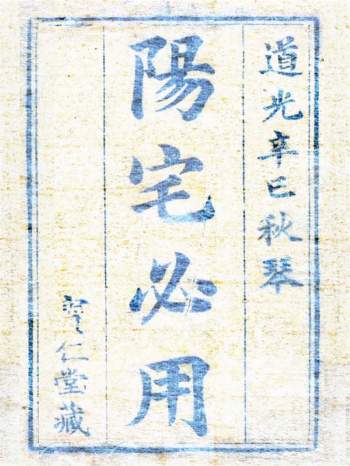 道光辛巳秋琴
陽宅必用
仁堂藏